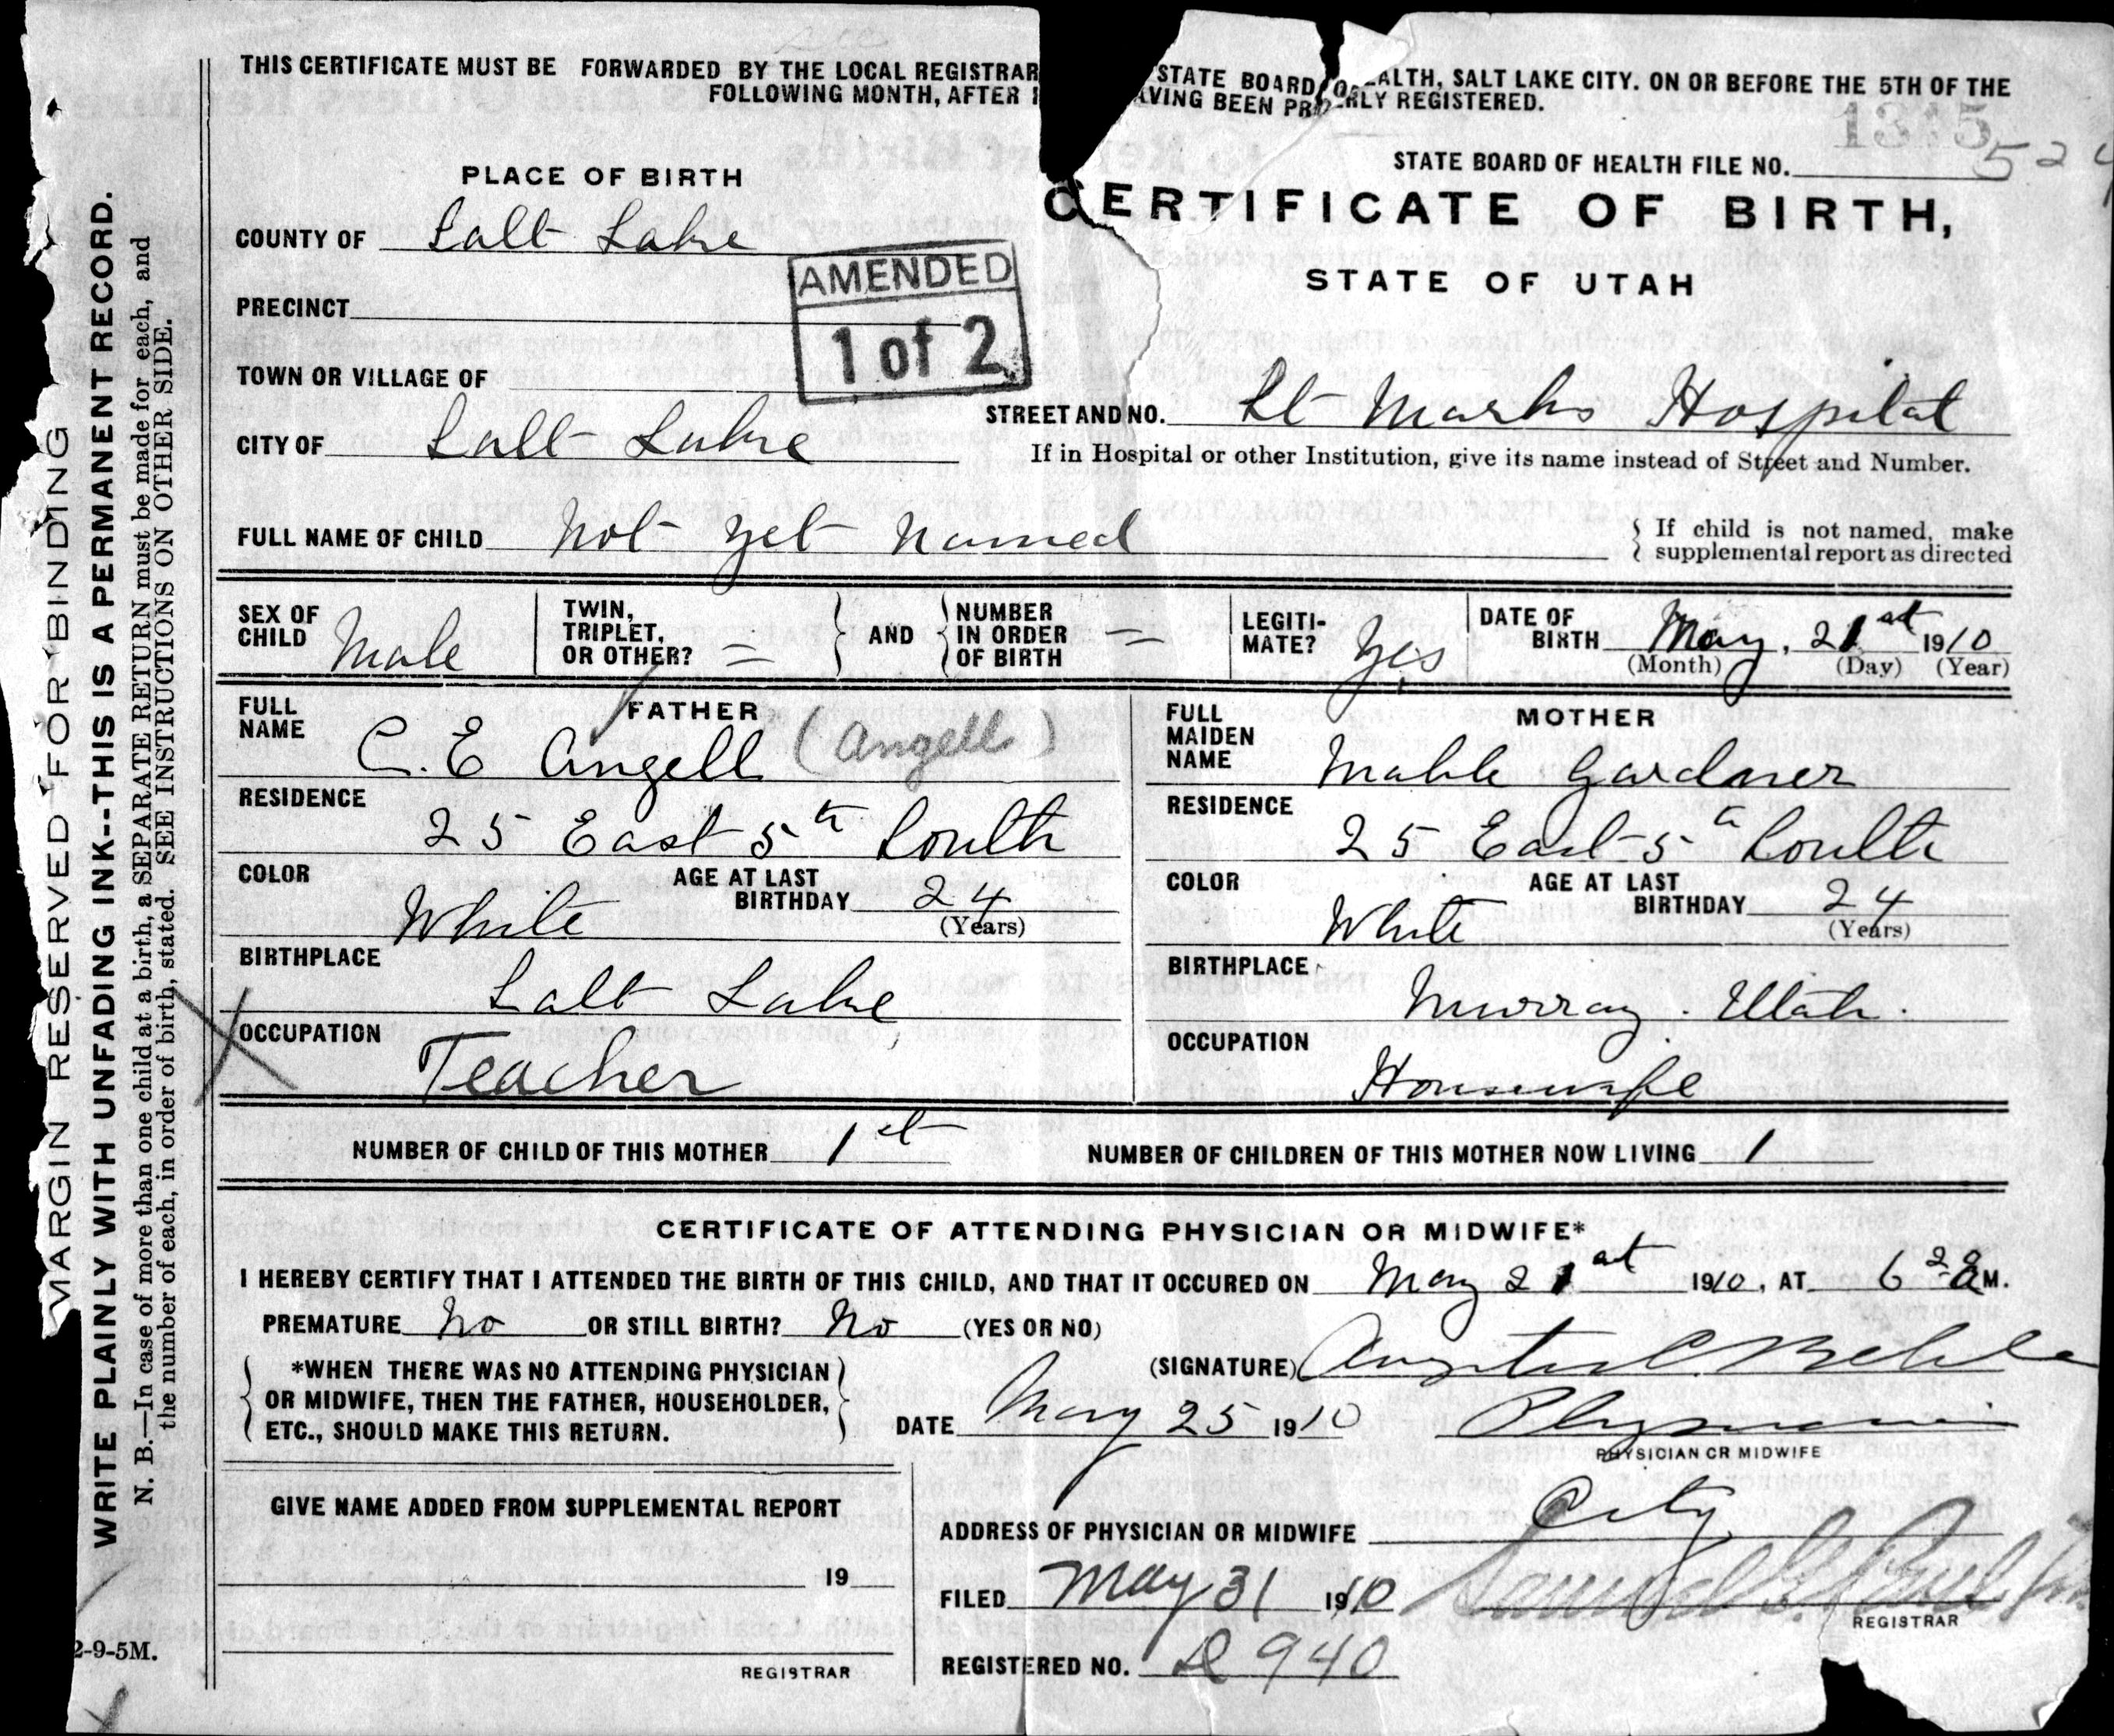 THIS CERTIFICATE MUST BE FORWARDED BY THE LOCAL REGISTRAR STATE BOARD OF HEALTH, SALT LAKE CITY. ON OR BEFORE THE 5TH OF THE
FOLLOWING MONTH, AFTER HAVING BEEN PROPERLY REGISTERED.
1315
524
STATE BOARD OF HEALTH FILE NO.
CERTIFICATE OF BIRTH,
STATE OF UTAH
PLACE OF BIRTH
COUNTY OF Salt Lake
AMENDED
1 of 2
PRECINCT
TOWN OR VILLAGE OF
STREET AND NO. St Marks Hospital
CITY OF Salt Lake
If in Hospital or other Institution, give its name instead of Street and Number.
FULL NAME OF CHILD Not yet Named
If child is not named, make
supplemental report as directed
SEX OF CHILD Male
TWIN, TRIPLET, OR OTHER? =
AND
NUMBER IN ORDER OF BIRTH =
LEGITI-MATE? Yes
DATE OF BIRTH May, 21st 1910
(Month) (Day) (Year)
FATHER
FULL NAME C. E Angell (Angell)
RESIDENCE 25 East 5th South
COLOR White
AGE AT LAST BIRTHDAY 24
(Years)
BIRTHPLACE Salt Lake
OCCUPATION Teacher
MOTHER
FULL MAIDEN NAME Mable Gardner
RESIDENCE 25 East 5th South
COLOR White
AGE AT LAST BIRTHDAY 24
(Years)
BIRTHPLACE Murray. Utah.
OCCUPATION Housewife
NUMBER OF CHILD OF THIS MOTHER 1st
NUMBER OF CHILDREN OF THIS MOTHER NOW LIVING 1
CERTIFICATE OF ATTENDING PHYSICIAN OR MIDWIFE*
I HEREBY CERTIFY THAT I ATTENDED THE BIRTH OF THIS CHILD, AND THAT IT OCCURED ON May 21st 1910, AT 6 A M.
PREMATURE No OR STILL BIRTH? No (YES OR NO)
*WHEN THERE WAS NO ATTENDING PHYSICIAN
OR MIDWIFE, THEN THE FATHER, HOUSEHOLDER,
ETC., SHOULD MAKE THIS RETURN.
(SIGNATURE) Behle
DATE May 25 1910
Physician
PHYSICIAN OR MIDWIFE
GIVE NAME ADDED FROM SUPPLEMENTAL REPORT
19
REGISTRAR
ADDRESS OF PHYSICIAN OR MIDWIFE City
FILED May 31 1910 Samuel G. Paul
REGISTRAR
REGISTERED NO. 940
MARGIN RESERVED FOR BINDING
WRITE PLAINLY WITH UNFADING INK--THIS IS A PERMANENT RECORD.
N. B.—In case of more than one child at a birth, a SEPARATE RETURN must be made for each, and
the number of each, in order of birth, stated. SEE INSTRUCTIONS ON OTHER SIDE.
2-9-5M.